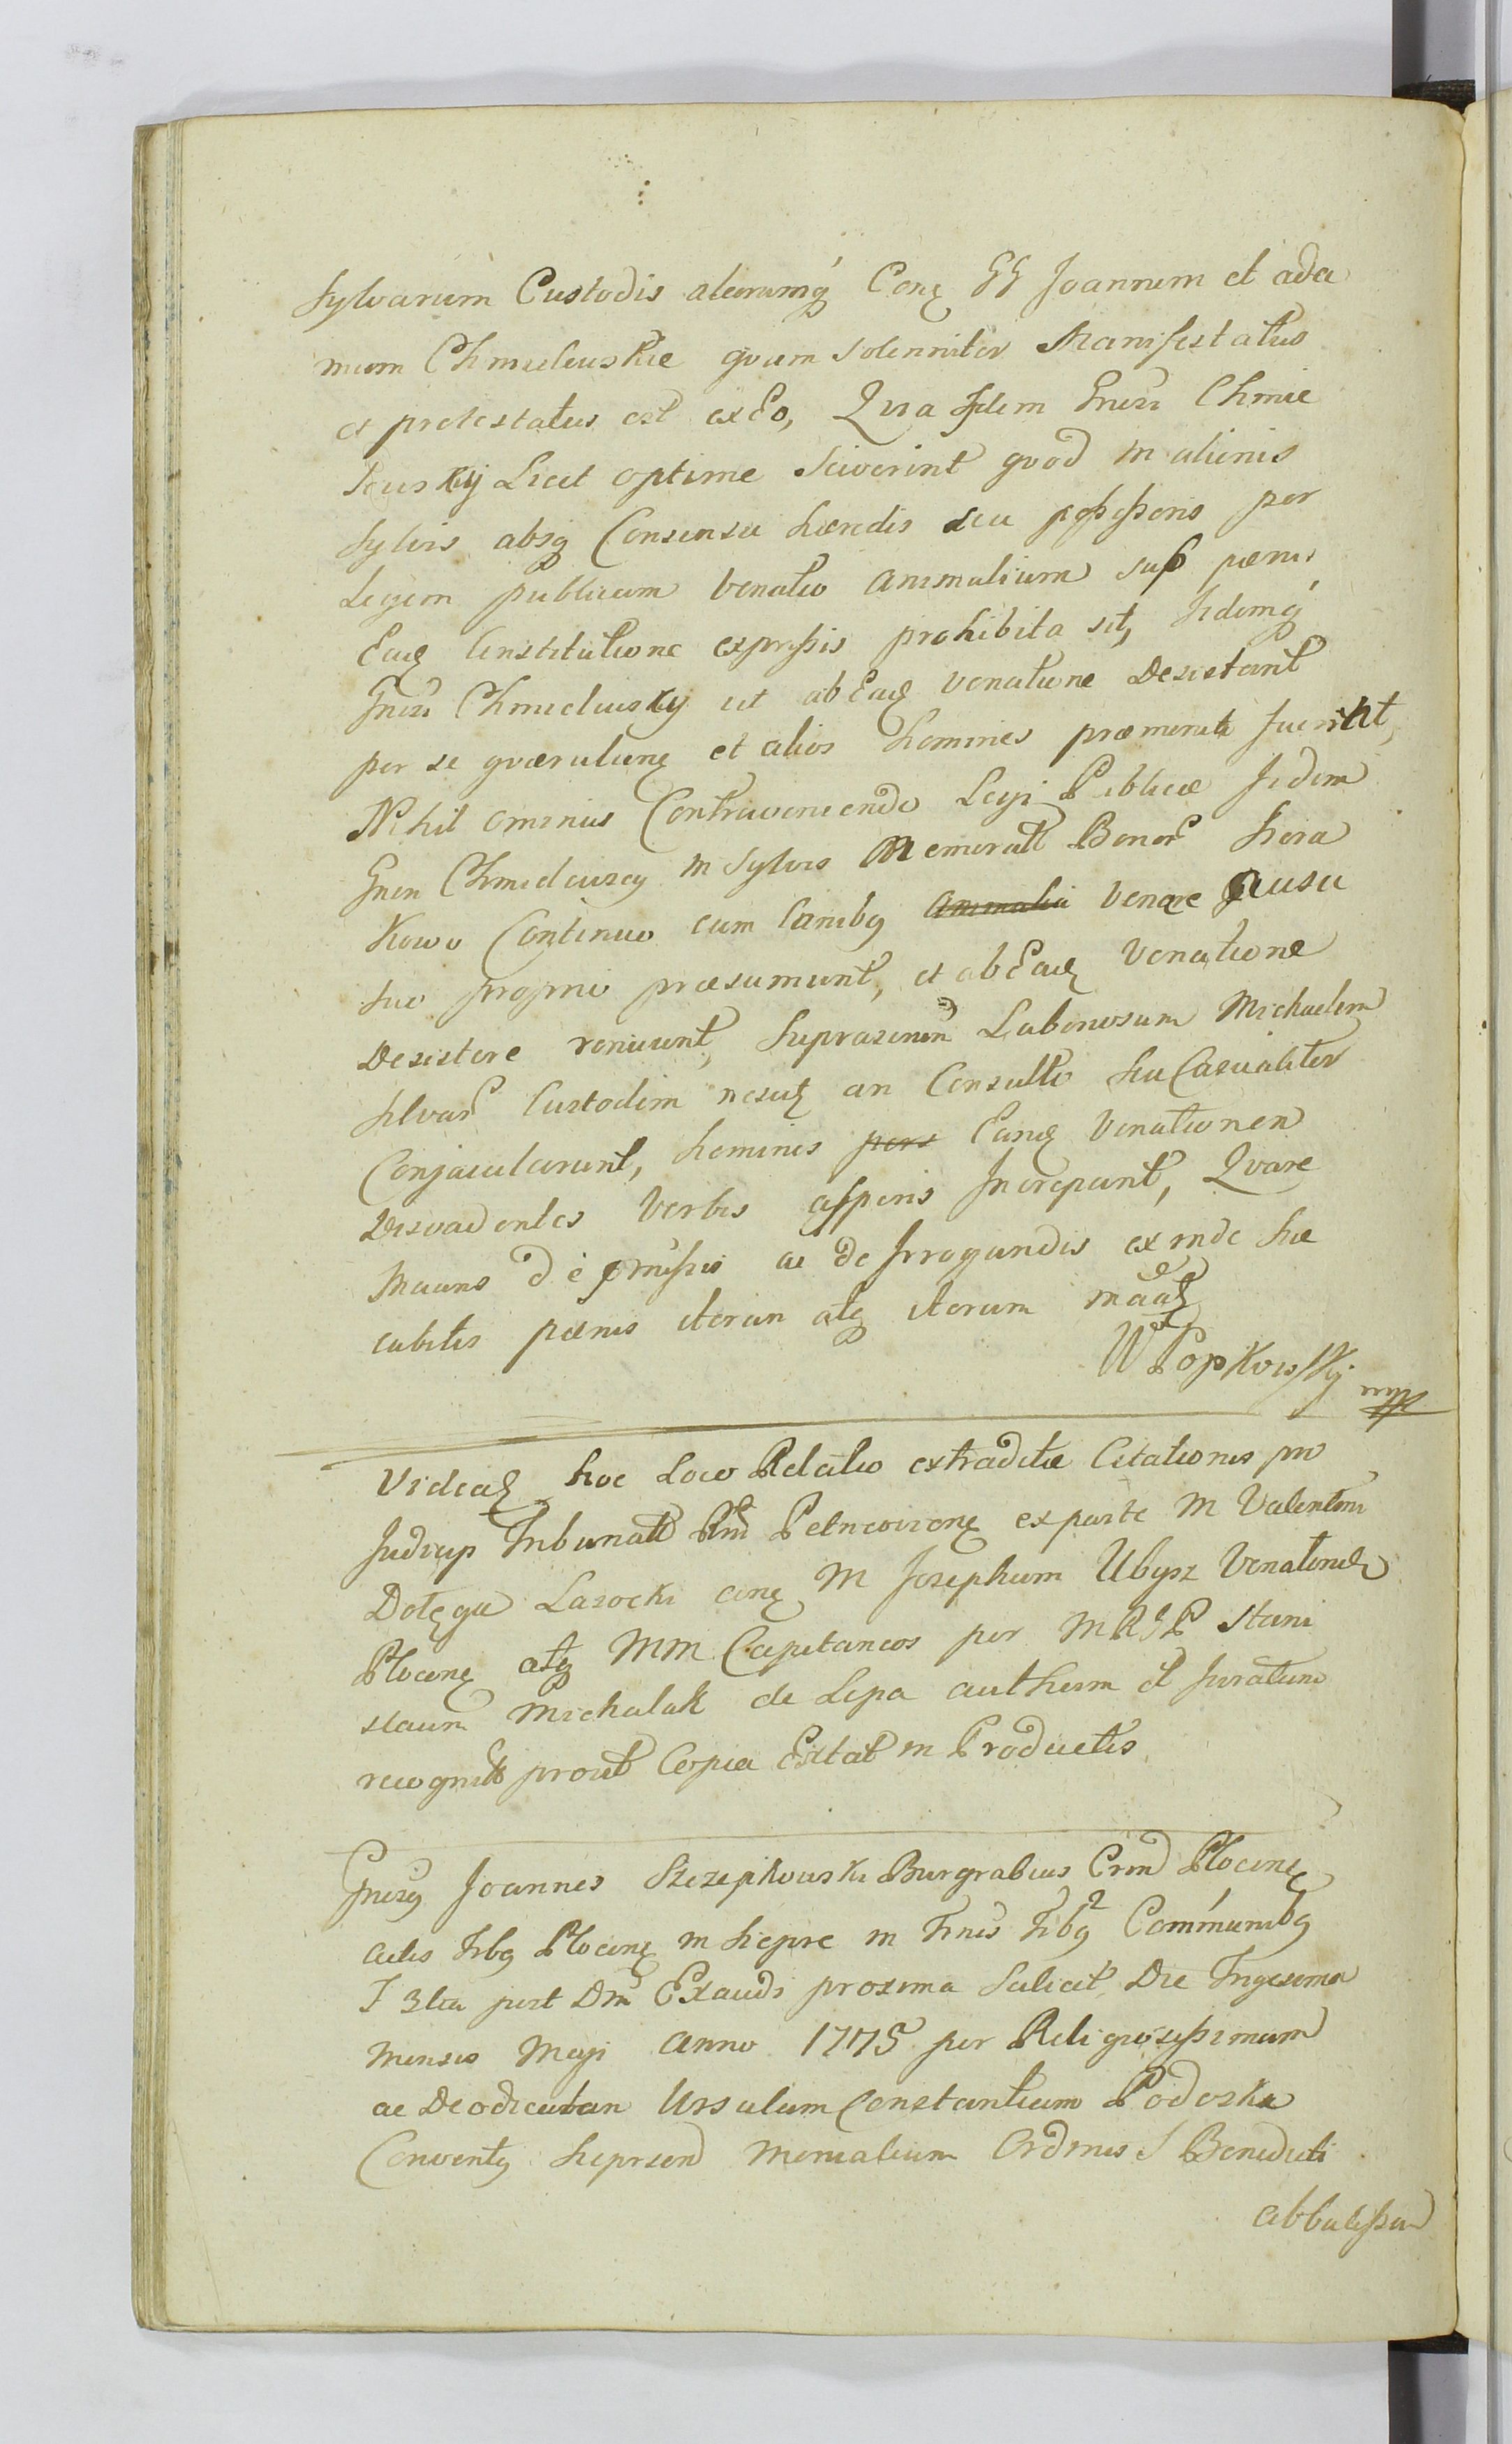 Sylvarum Custodis aliorumq́ Conę GG Joannem et ada
mum Chmielewskie quam solenniter Manifestatus
et protestatus est ex Eo, Quia Iidem Gnesi Chmie
lewskij Licet optime Sciverint quod in alienis
Sylvis absq Consensu hæredis seu possessoris per
Legem publicam Venatio animalium sub pænis
Eadę Constitutione expressis prohibita sit, Iidemq́
Gnesi Chmielewsky ut ab Eadę venatione Desistant
per se quærulunę et alios homines præmoniti fuerint,
Nihil ominus Contraveniendo Legi Publicæ Iidem
Gnen Chmielewscy in Sylvis Memorat Bonor Siera
kowo Continuo cum Canibq animalia Venare Ausu
suo proprio præsumunt, et ab Eadę Venatione
Desistere renuunt, Suprascnem Laboriosum Michaelem
Silvar Custodem nesciꝫ an Consulto seu Casualiter
Conjaculerunt, homines pers Eandę Venationem
Disvadentes Verbis asperis Increpant, Qvare
Means de præmissis ac de Irrogandis exinde sue
cubitis pænis iterum atq iterum maãꝫ
W Popkowskij mpp
Videaꝫ hoc Loco Relatio extraditæ Citationis pro
Judicys Tribunalt Rni Petricovienę ex parte M Valentini
Dołęga Lasocki conę M Josephum Ubysz Venatorem
Plocenę atq MM Capitaneos per MRJP Stani
slaum Michalak de Lipa authum et Juratum
recognit prout Copia Extat in Productis
Gnesq Joannes Szczepkowski Burgrabius Crend Plocenę
actis Trbq Plocenę in Siepre in Trnis Trbq Communibq
F 3tia post Dm Exaudi proxima Scilicet Die Trigesima
Mensis Maji anno 1775 per Religiosissimam
ac Deodicatam Ursulam Constantiam Podoska
Conventq Sieprsen Monialium Ordinis S Benedicti
abbatissam